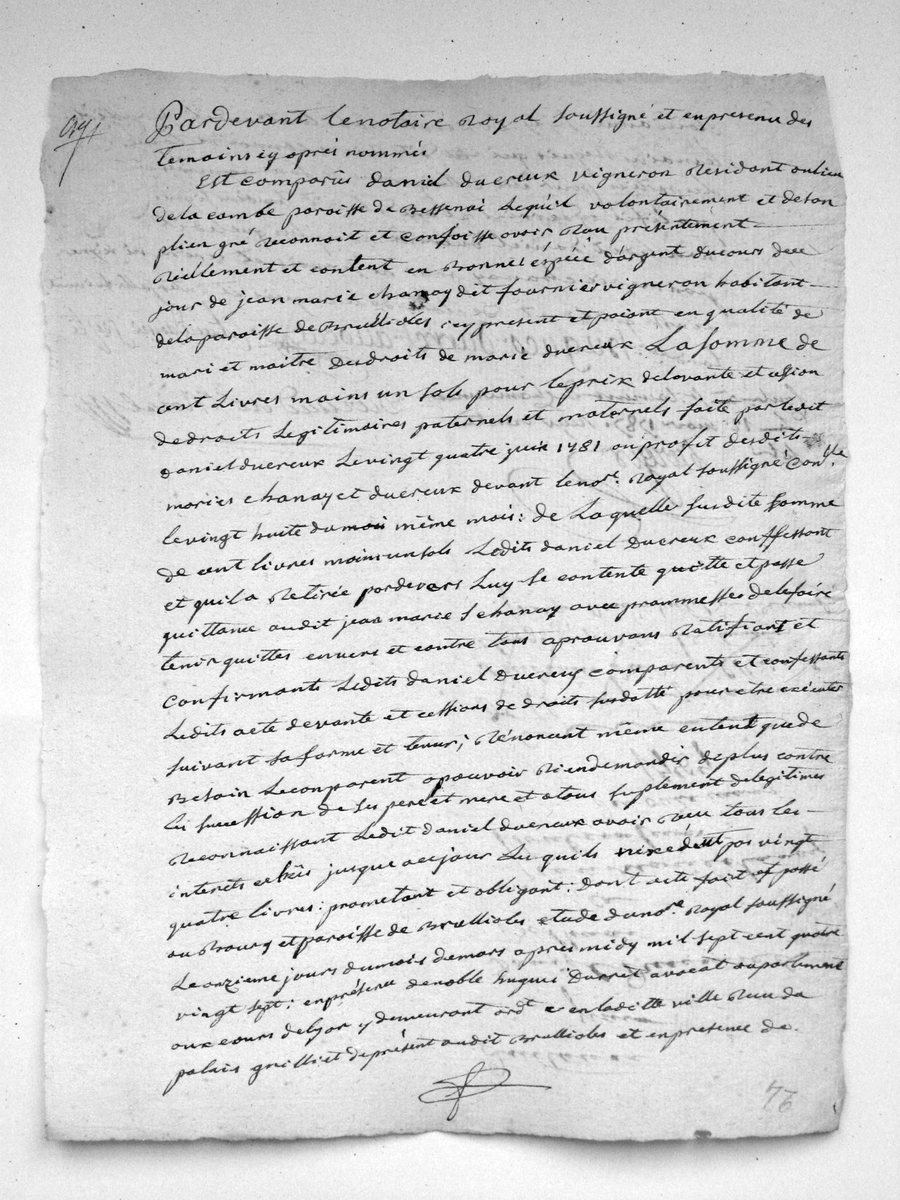 Pardevant le notaire Royal soussigné et en presence des
temoins cy aprés nommés
Est comparûs daniel ducreux vigneron Résidant au lieu
de la combe paroisse de Bessenai Lequél volontairement et de son
plien gré Reconnoit et confoisse avoir Reçu présentement
Riéllement et contént en Bonnes éspécé d'argent du cours de ce
jour de jean marie chanay dit fournier vigneron habitant
de la paroisse de Brullioles icy present et paiant en qualité de
mari et maitre des droits de marie ducreux La somme de
cent Livres moins un sols pour le prix de la vante et cession
de droits Legitimaires paternels et maternels faite par ledit
daniel ducreux Le vingt quatre juin 1781 au profit desdits
mariés chanay et ducreux devant le nore. Royal soussigné Con.lle
le vingt huite du mois même mois: de Laquelle susdite somme
de cent livres moins un sols Ledits daniel Ducreux conffessant
et qu'il a Retirée pardevers Luy se contente quitte et passe
quittance audit jean marie Schanay avec prommesses de le faire
tenir quittes envers et contre tous aprouvans Ratifiant et
confirmants Ledits daniel Ducreux comparents et confessants
Ledits acte de vante et cessions de droits susdatté pour etre exécuter
suivant sa forme et tenur; Rénoncent même entent que de
Besoin Le comparent a pouvoir Rien demandér de plus contre
les succession de ses pere et mere et a tous suplement de legitimes
Reconnaissant Ledit daniel ducreux avoir Reçu tous les
interets echûs jusque a ce jour Les quels nixédent pas vingt
quatre livres: prometant et obligeant: dont acte fait et passé
au Bourg et paroisse de Brullioles etude du nore. Royal soussigné
Le onzieme jours du mois de mars apres midy mil sept cent quatre
vingt sept; en présence de noble hugues avocat au parlement
aux cours de lyon y demeurant ordre en laditte ville Rue du
palais grilliet de présent audit Brullioles et en presence de
76